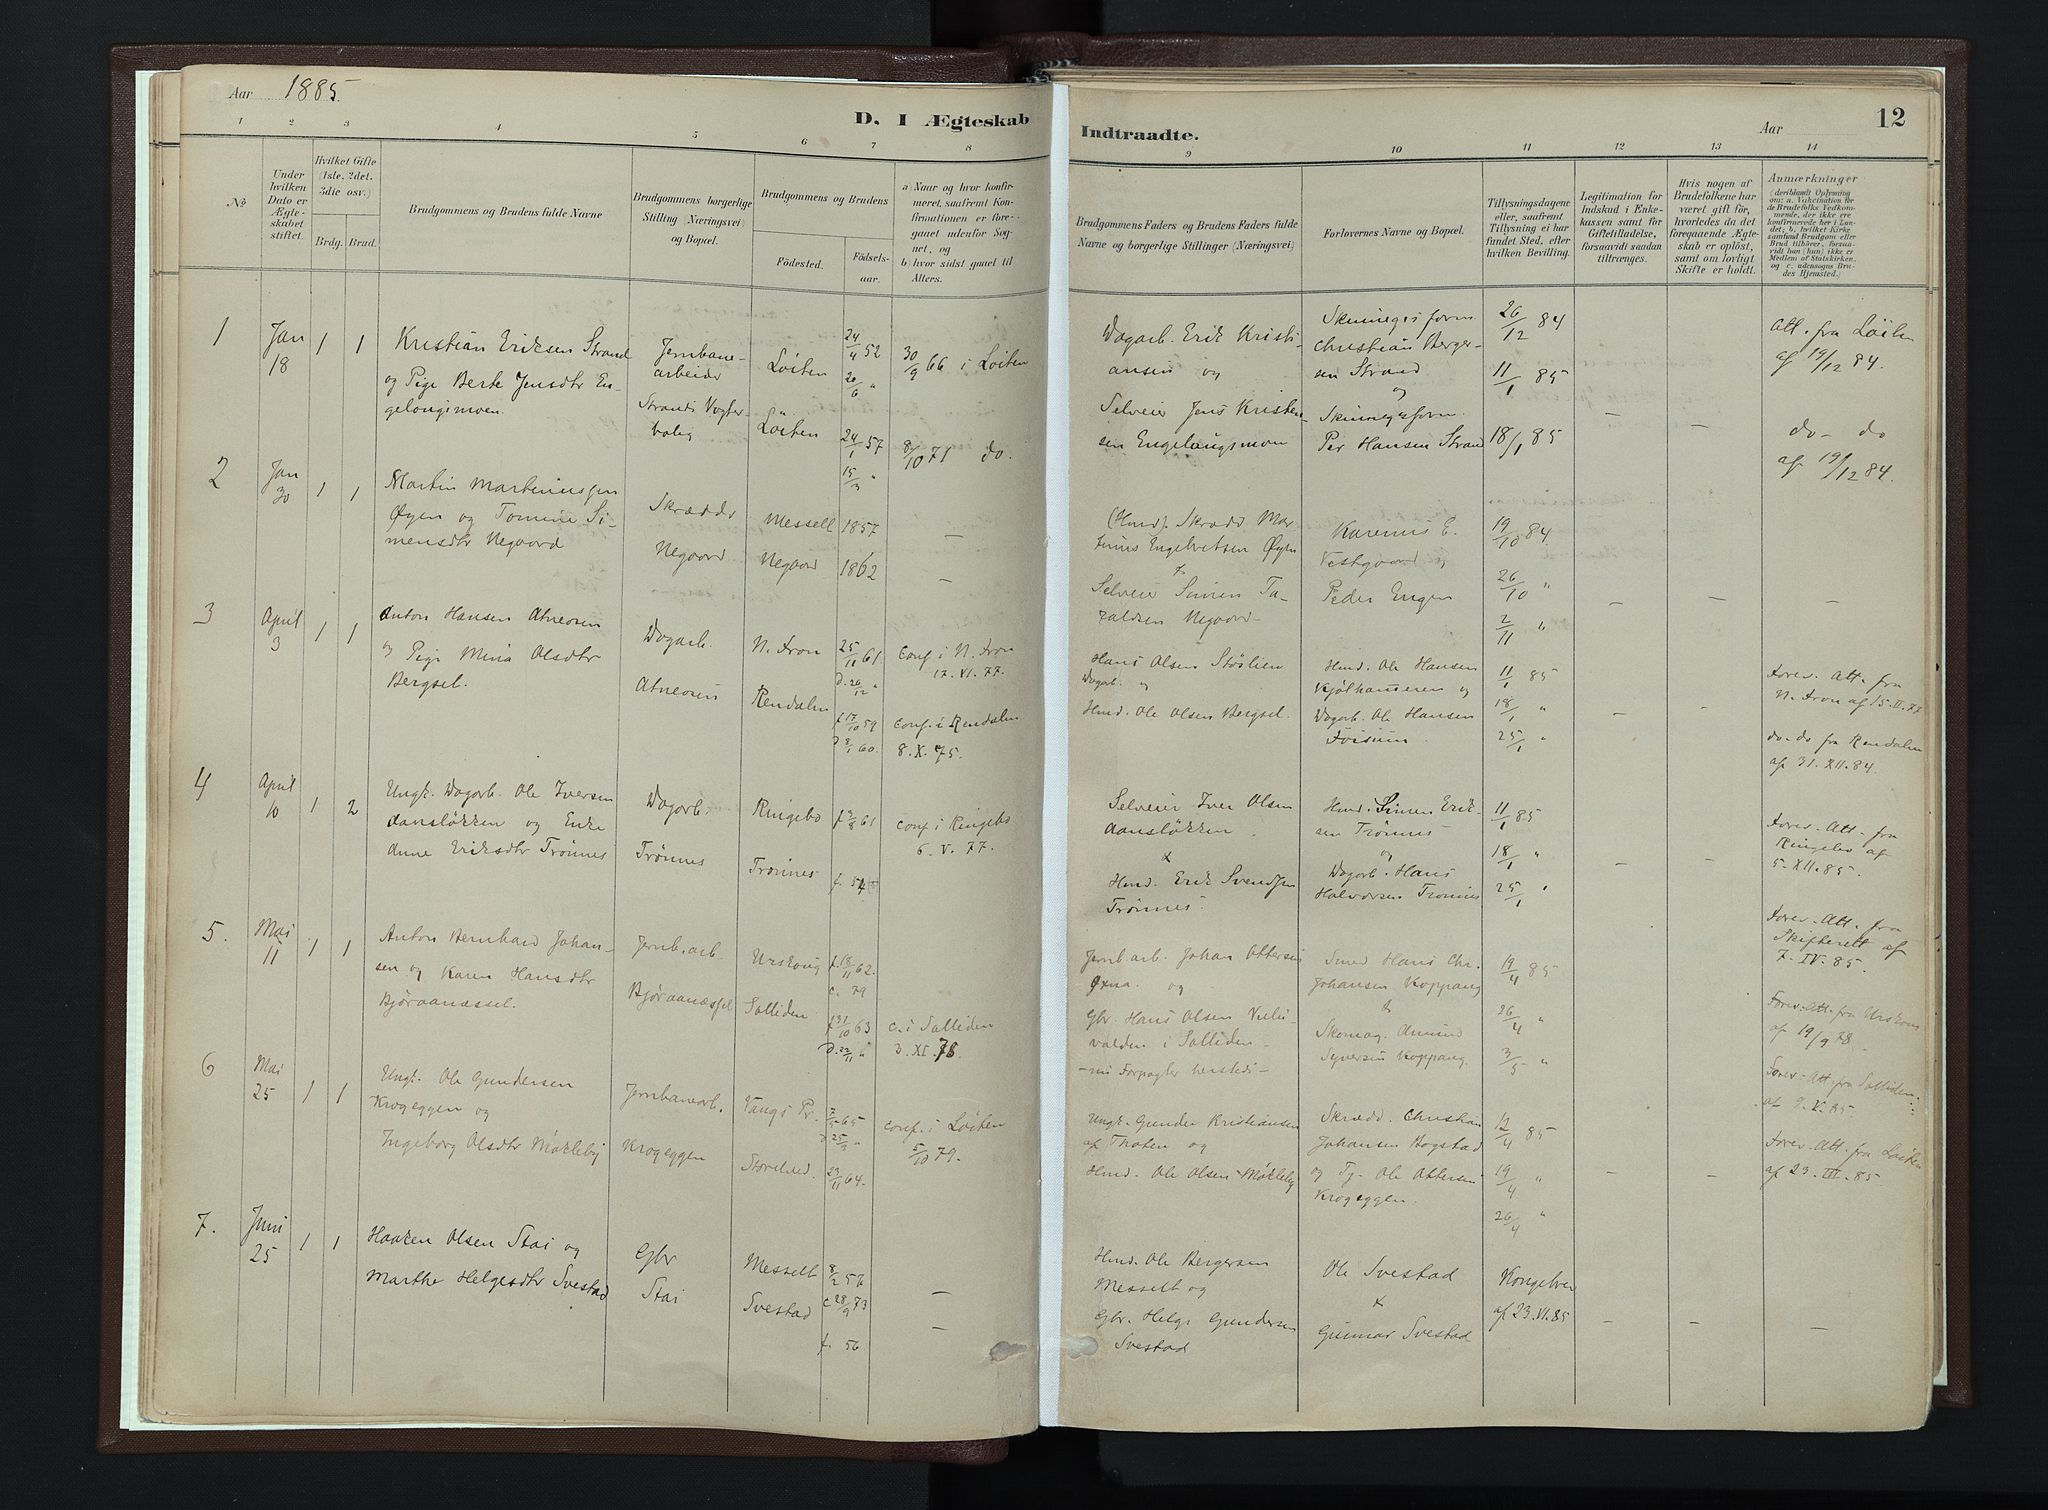 Aar 1885.
D. I Ægteskab
Indtraadte.
Aar
12
1 2 3 4 5 6 7 8
9 10 11 12 13 14
No
Under hvilken Dato er Ægteskabet stiftet.
Hvilket Gifte (1ste, 2det, 3die osv.)
Brdg. Brud.
Brudgommens og Brudens fulde Navne
Brudgommens borgerlige Stilling (Næringsvei) og Bopæl.
Brudgommens og Brudens
Fødested. Fødselsaar.
a) Naar og hvor konfirmeret, saafremt Konfirmationen er foregaaet udenfor Sognet, og
b) hvor sidst gaaet til Alters.
Brudgommens Faders og Brudens Faders fulde Navne og borgerlige Stillinger (Næringsvei)
Forlovernes Navne og Bopæl.
Tillysningsdagene eller, saafremt Tillysning ei har fundet Sted, efter hvilken Bevilling.
Legitimation for Indskud i Enkekassen samt for Giftetilladelse, forsaavidt saadan tiltrænges.
Hvis nogen af Brudefolkene har været gift før, hvorledes da det foregaaende Ægteskab er opløst, samt om lovligt Skifte er holdt.
Anmærkninger
(deriblandt Oplysning om: a. Vakcination for de Brudefolks Vedkommende, der ikke ere konfirmerede her i Landet; b. hvilket Kirkesamfund Brudgom eller Brud tilhører, forsaavidt han (hun) ikke er Medlem af Statskirken, og c. udensogns Brudes Hjemsted.)
1 Jan 18 1 1
Kristian Eriksen Strand
og Pige Berte Jensdtr En-
gelaugsmoen.
Jernbane-
arbeider
Løiten
24/4 52
20/6 "
30/9 66 i Løiten
Løiten
24/1 57
15/3 "
8/10 71 do.
Dagarb. Erik Kristi-
ansen og
Selveier Jens Kristen-
sen Engelaugsmoen
Christian Berger-
sen Strand
og
Per Hansen Strand
26/12 84
11/1 85
18/1 85
Att. fra Løiten
af 19/12 84.
do - do
af 19/12 84.
2 Jan 30 1 1
Martin Martinussen
Øyen og Tomine Si-
mensdtr Negaard
Skrædder
Negaard
Messelt 1857 —
Negaard 1862 —
(Hmd). Skrædd. Mar-
tinus Engebretsen Øyen
Selveier Simen Ta-
raldsen Negaard
Karenus E.
Vestgaard og
Peder Engen
19/10 84
26/10 "
2/11 "
3 April 3 1 1
Anton Hansen Atneosen
og Pige Mina Olsdtr
Bergset.
Dagarb.
Atneosen
N. Fron
25/11 61.
d. 26/12 "
conf. i N. Fron
17. XI. 77.
Rendalen
f 17/10 59
d 8/1 60.
conf. i Rendalen
8. X. 75.
Hans Olsen Stølien
Dagarb. og
Hmd. Ole Olsen Bergset.
Hmd. Ole Hansen
Kjølhammeren og
Dagarb. Ole Hansen
11/1 85
18/1 "
25/1 "
Forev. Att. fra
N. Fron af 15. II. 77
do - do fra Rendalen
af 31. XII. 84.
4 April 10 1 2
Ungk. Dagarb. Ole Iversen
Aansløkken og Enke
Anne Eriksdtr Trønnes
Dagarb.
Trønnes
Ringebo
conf. i Ringebo
6. V. 77.
Trønnes
Selveier Iver Olsen
Aansløkken.
Hmd. Erik Svendsen
Trønnes.
Hmd. Simen Erik-
sen Trønnes
og
Dagarb. Hans
Halvorsen Trønnes
11/1 85
18/1 "
25/1 "
Forev. Att. fra
Ringebo af
5. XII. 85.
Forev. Att. fra
Skifteret af
7. IV. 85.
5. Mai 11 1 1
Anton Bernhard Johan-
sen og Karen Hansdtr
Bjøraanæsset.
Jernb. arb.
Bjøraanæsset
Urskoug
f. 18/11 62.
c. 79
Solliden
f 31/10 63
d. 22/11 "
c. i Solliden
3. XI. 78.
Jernb. arb. Johan Ottersen
og
Gbr. Hans Olsen
i Solliden
Smed Hans Chr.
Johansen Koppang
Skomag. Amund
Syversen Koppang.
19/4 85
26/4 "
3/5 "
Forev. Att. fra Urskoug
af 19/9 78.
Forev. Att. fra Solliden
af 9. V. 85
6 Mai 25 1 1
Ungk. Ole Gundersen
Krogeggen og
Ingeborg Olsdtr Møkleby
Jernbanearb.
Krogeggen
Vangs Pr.
conf. i Løiten
5/10 79.
Storelvd.
23/11 64.
Ungk. Gunder Kristiansen
af Thoten og
Hmd. Ole Olsen Møkleby
Skrædd. Christian
Johansen Bogstad
og Tj. Ole Ottersen
Krogeggen.
12/4 85
19/4 "
26/4 "
Forev. Att. fra Løiten
af 23. III. 85.
7. Juni 25 1 1
Haaken Olsen Stai og
Marthe Helgesdtr Svestad
Gbr
Stai
Messelt
8/2 56
c 28/9 73
—
Svestad
f. 56
—
Hmd. Ole Bergersen
Messelt og
Gbr. Helge Gundersen
Svestad
Ole Svestad
Gunnar Svestad
Kongebrev
af 23. VI. 85